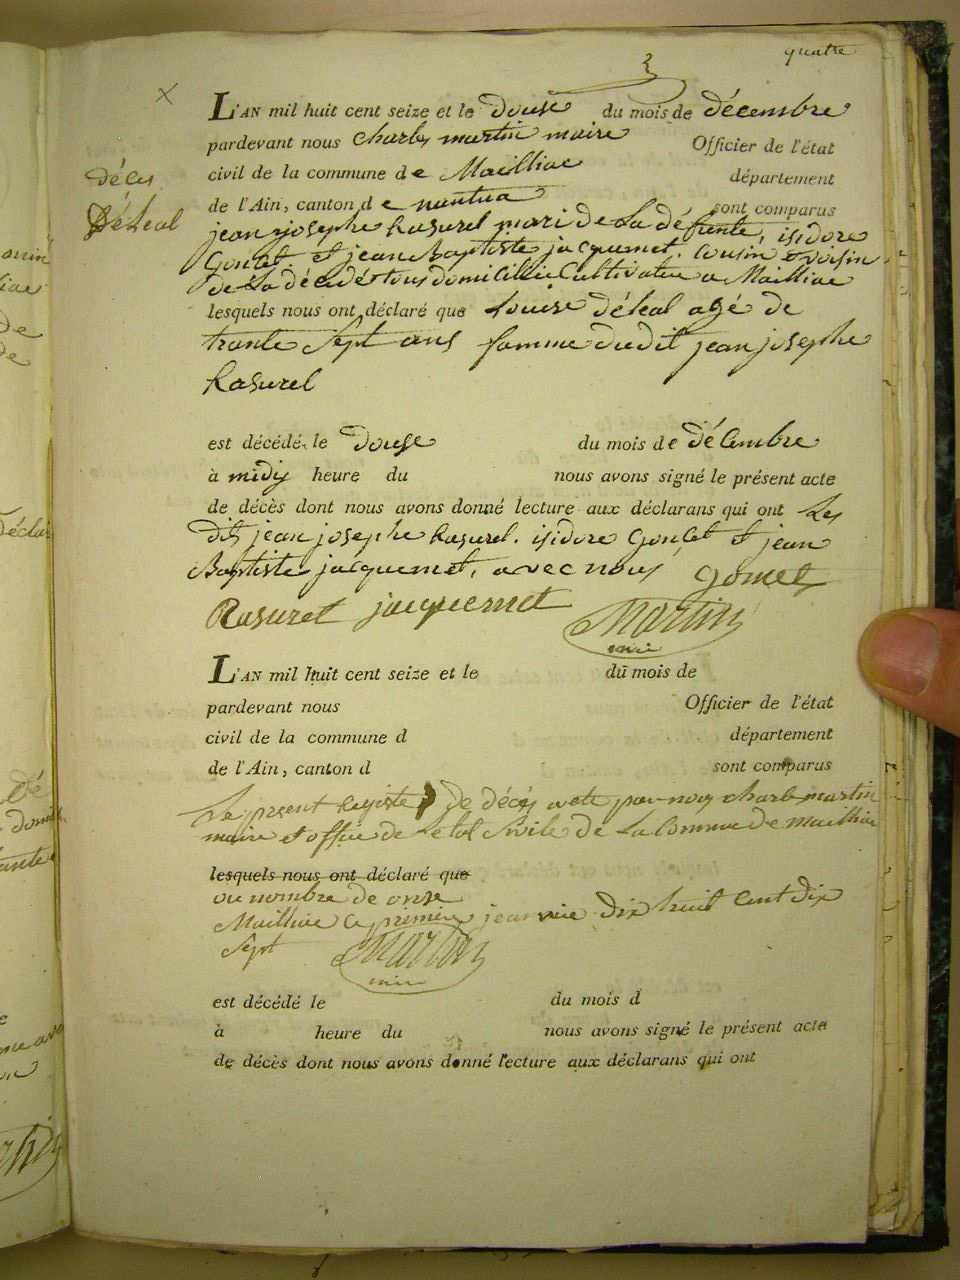 quatre
L'AN mil huit cent seize et le Douse du mois de décembre
pardevant nous Charles martin maire Officier de l'état
décés
civil de la commune de Mailliac département
Déléal
de l'Ain, canton de nantua sont comparus
jean josephe Rasurel mari de La défunte, isidore
Goulet et jean Baptiste jacquemet. Cousin et voisin
de La décédés tous domicillié Cultivateur a Mailliac
lesquels nous ont déclaré que Louise déléal agé de
trante Sept ans famme dudit jean josephe
Rasurel
est décédé le Douse du mois de décembre
à midy heure du nous avons signé le présent acte
de décès dont nous avons donné lecture aux déclarans qui ont Les
dits jean josephe Rasurel. isidore Goulet et jean
Baptiste jacquemet, avec nous
Rasurel jacquemet Martin
L'AN mil huit cent seize et le du mois de
pardevant nous Officier de l'état
civil de la commune d département
de l'Ain, canton d sont comparus
Le present Registre de décés a eté par nous charle martin
maire et officie de Letat Sivile de La Commune de mailliac
lesquels nous ont déclaré que
ou nombre de onse
Mailliac Ce premier jeanvie dix huit Cent dix
Sept Martin
est décédé le du mois d
à heure du nous avons signé le présent acte
de décès dont nous avons donné lecture aux déclarans qui ont